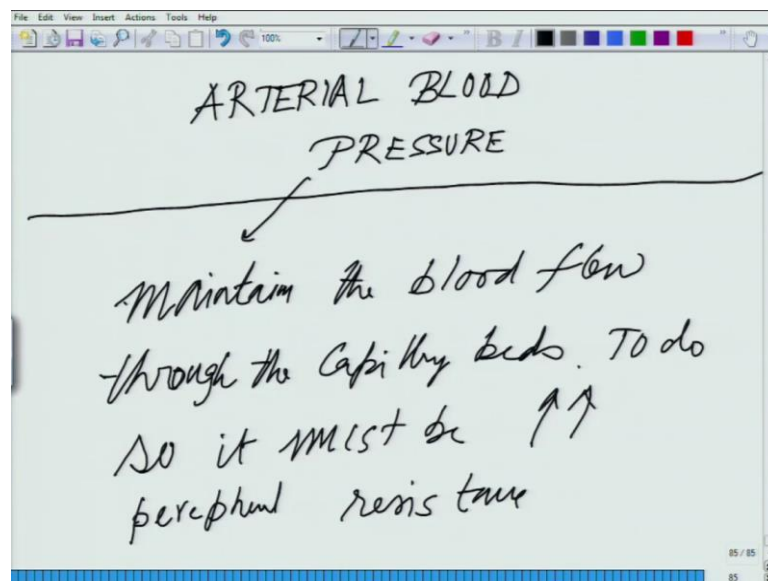 File Edit View Insert Actions Tools Help
100%
ARTERIAL BLOOD
PRESSURE
Maintain the blood flow
through the Capillry beds. To do
so it must be ↑↑
perepheral resistance
85/85
85